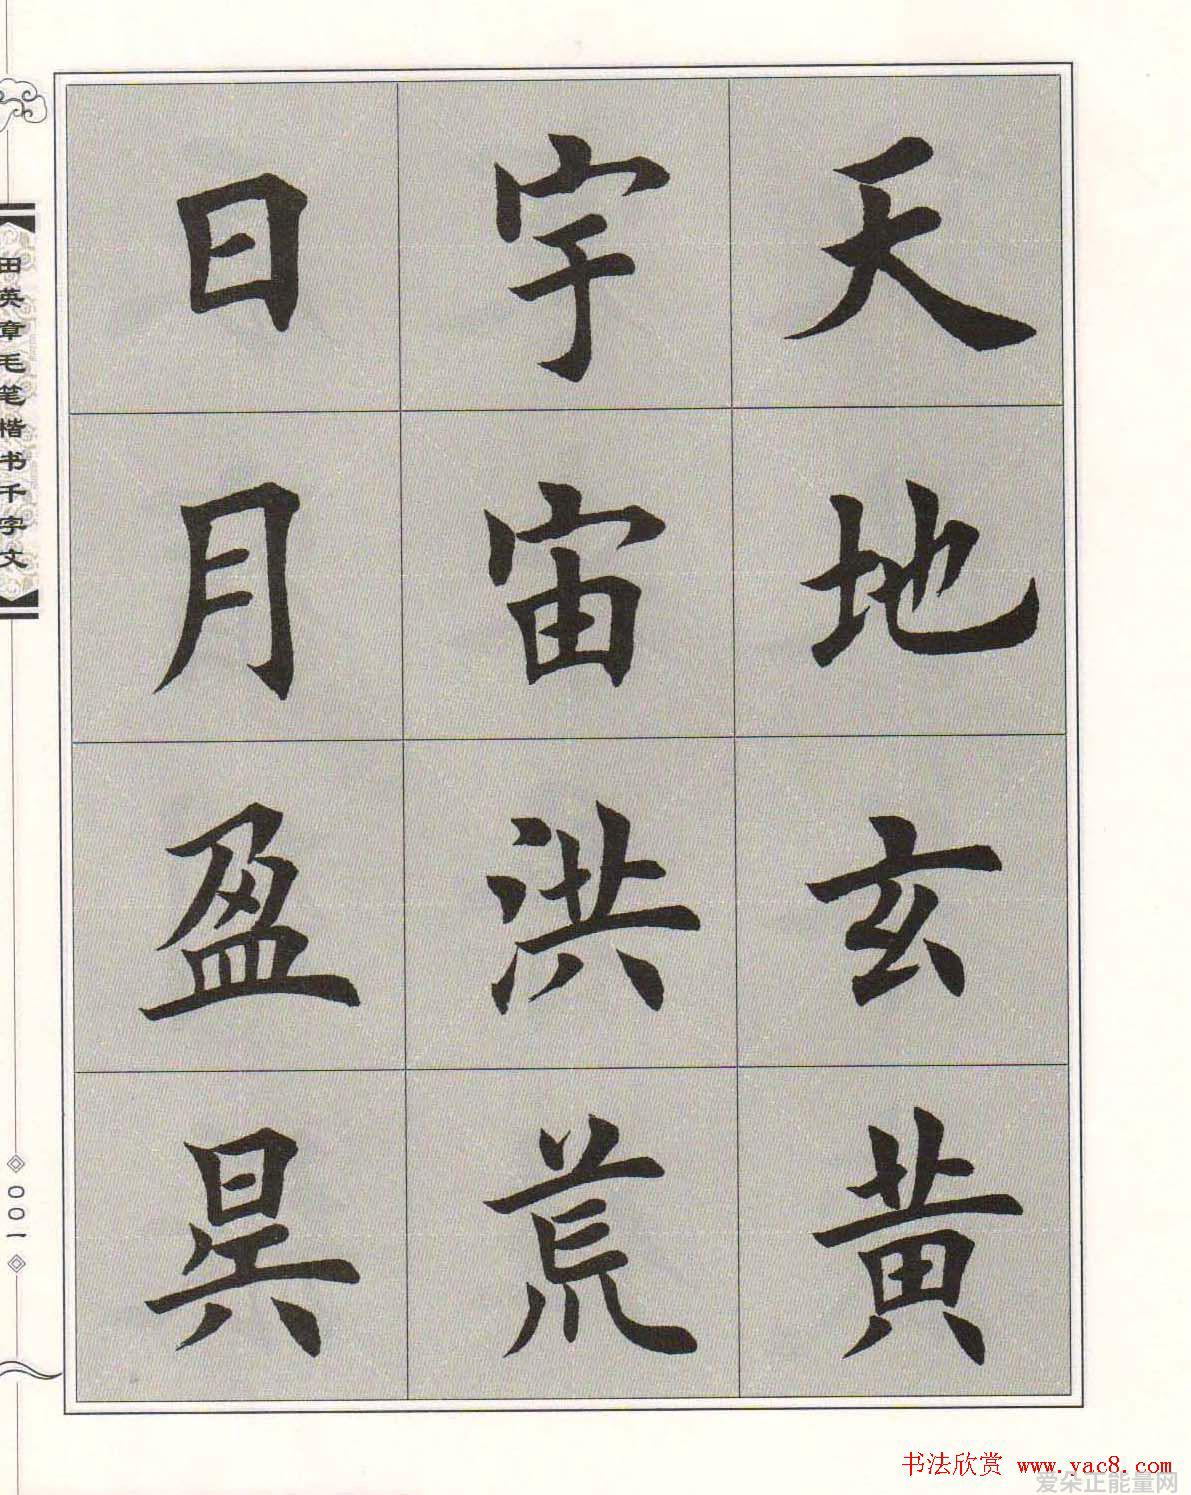 天地玄黄
宇宙洪荒
日月盈昃
田英章毛笔楷书千字文
001
书法欣赏 www.yac8.com
爱朵正能量网